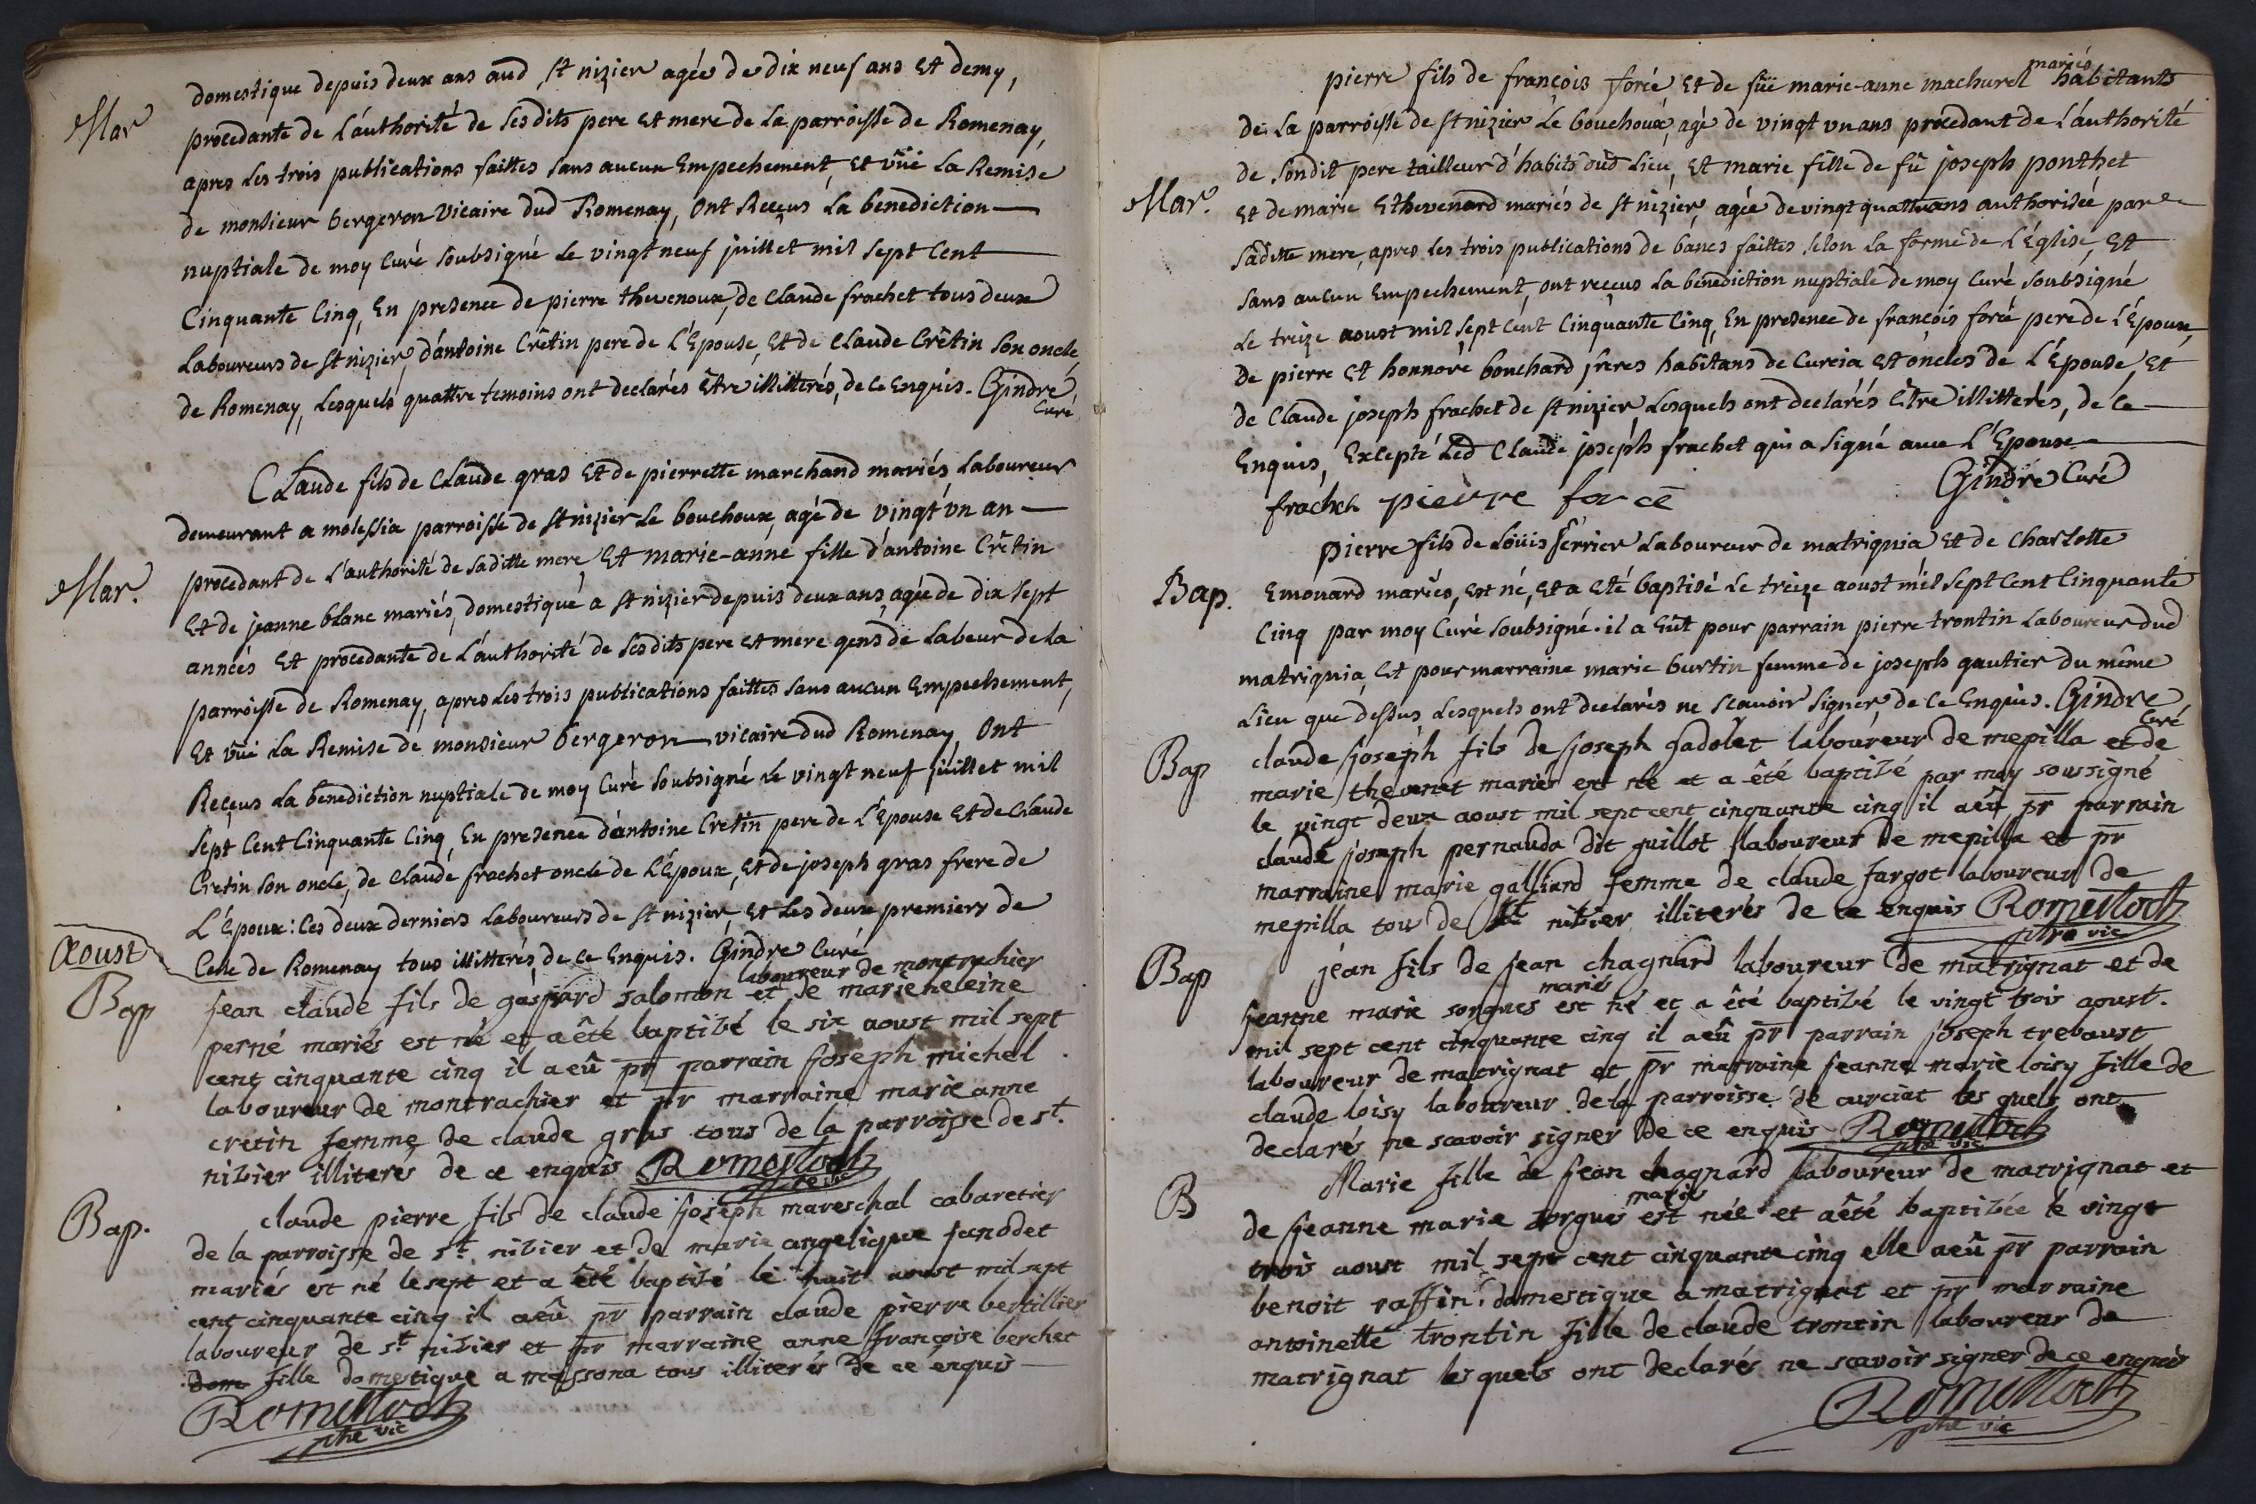 domestique depuis deux ans aud St nizier agée de dix neuf ans Et demy,
Mar
procedante de L'authorité de sesdits pere et mere de La parroisse de Romenay,
apres les trois publications faittes sans aucun Empechement, et vüe La Remise
de monsieur bergeron vicaire dud Romenay, Ont Reçeus La benediction
nuptiale de moy Curé soubsigné Le vingt neuf juillet mil sept Cent
Cinquante Cinq, En presence de pierre thevenoux, de Claude frachet tous deux
Laboureurs de St nizier, d'antoine Crêtin pere de L'Epouse, Et de Claude Crêtin son oncle,
de Romenay, Lesquels quattre temoins ont declarés Être illitterés, de ce Enquis. Gindre
Curé
Claude fils de Claude gras Et de pierrette marchand mariés Laboureur
demeurant a molessia parroisse de St nizier Le bouchoux, agé de vingt un an
Mar.
procedant de L'authorité de saditte mere, Et marie-anne fille d'antoine Crêtin
Et de jeanne blanc mariés, domestique a St nizier depuis deux ans, agée de dix sept
années Et procedante de L'authorité de sesdits pere et mere gens de Labeur de La
parroisse de Romenay, apres Les trois publications faittes sans aucun Empechement,
Et vüe La Remise de monsieur bergeron vicaire dud Romenay, Ont
Reçeus La benediction nuptiale de moy Curé soubsigné Le vingt neuf juillet mil
sept Cent Cinquante Cinq, En presence d'antoine Cretin pere de L'Epouse Et de Claude
Cretin son oncle, de Claude frachet oncle de L'Époux, Et de joseph gras frere de
L'Époux: Ces deux derniers Laboureurs de St nizier, Et Les deux premiers de
Aoust
Celle de Romenay tous illitterés, de ce Enquis. Gindre Curé
laboureur de montrachier
Bap
jean claude fils de gaspard salomon et de marie heleine
perné mariés est né et a êté baptizé le six aoust mil sept
cent cinquante cinq il a eû pr parrain joseph michel
laboureur de montrachier et pr marraine marie anne
cretin femme de claude gras tous de la parroisse de st.
nizier illiterés de ce enquis Romestoch
ptre vic
Bap.
claude pierre fils de claude joseph mareschal cabaretier
de la parroisse de st. nizier et de marie angelique janodet
mariés est né le sept et a êté baptizé le huit aoust mil sept
cent cinquante cinq il a eû pr parrain claude pierre bertillier
laboureur de st. nizier et pr marraine anne françoise berchet
dom fille domestique a massona tous illiterés de ce enquis
Romestoch
ptre vic
mariés
pierre fils de françois forcé Et de füe marie-anne machurel habitants
de La parroisse de St nizier Le bouchoux, agé de vingt un ans procedant de L'authorité
de sondit pere tailleur d'habits dud Lieu, Et marie fille de fû joseph ponthet
Mar.
Et de marie Ethevenard mariés de St nizier, agée de vingt quattre ans authorisée par
saditte mere, apres Les trois publications de bancs faittes selon La forme de L'Église, Et
sans aucun Empechement, ont reçeus La bénediction nuptiale de moy Curé soubsigné
Le treize aoust mil sept cent Cinquante Cinq, En presence de françois forcé pere de L'Époux,
De pierre Et honnoré bouchard freres habitans de Curcia Et oncles de L'Épouse, Et
de Claude joseph frachet de St nizier Lesquels ont declarés Être illitterés, de Ce
Enquis, Excepté Led Claude joseph frachet qui a signé avec L'Epoux
Gindre Curé
frachet pierre forcé
pierre fils de Loüis ferrier Laboureur de matrignia Et de Charlotte
Bap.
Emonard mariés, Est né, Et a Eté baptisé Le treize aoust mil sept Cent Cinquante
Cinq par moy Curé soubsigné. il a Eût pour parrain pierre trontin Laboureur dud
matrignia, Et pour marraine marie burtin femme de joseph gautier du même
Lieu que dessus, Lesquels ont declarés ne sçavoir signer, de Ce Enquis. Gindre
Curé
Bap
claude joseph fils de joseph jadolet laboureur de mepilla et de
marie thevenet mariés est né et a êté baptizé par moy soussigné
le vingt deux aoust mil sept cent cinquante cinq il a eû pr parrain
claude joseph pernauda dit guillot laboureur de mepilla et pr
marraine marie galliard femme de claude fargot laboureur de
mepilla tous de st nizier illiterés de ce enquis Romestoch
ptre vic
Bap
jean fils de jean chagnard laboureur de matrignat et de
mariés
jeanne marie sorgues est né et a êté baptizé le vingt trois aoust.
mil sept cent cinquante cinq il a eû pr parrain joseph treboust
laboureur de matrignat et pr marraine jeanne marie loisy fille de
claude loisy laboureur de la parroisse de curciat les quels ont
declarés ne scavoir signer de ce enquis Romestoch
ptre vic
B
Marie fille de jean chagnard laboureur de matrignat et
mariés
de jeanne marie sorgues est née et a êté baptizée le vingt
trois aoust mil sept cent cinquante cinq elle a eû pr parrain
benoit raffin domestique a matrignat et pr marraine
antoinette trontin fille de claude trontin laboureur de
matrignat les quels ont declarés ne scavoir signer de ce enquis
Romestoch
ptre vic